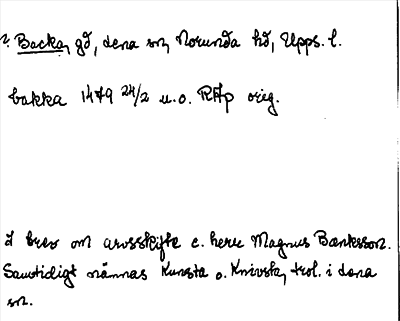 ?. Backa, gd, dena sn, Norunda hd, Upps. l.
bakka 1479 24/2 u.o. RAp orig.
I brev om arvsskifte e. herr Magnus Bænktsson.
Samtidigt nämnas Kunsta o. Knivsta, trol. i dena
sn.